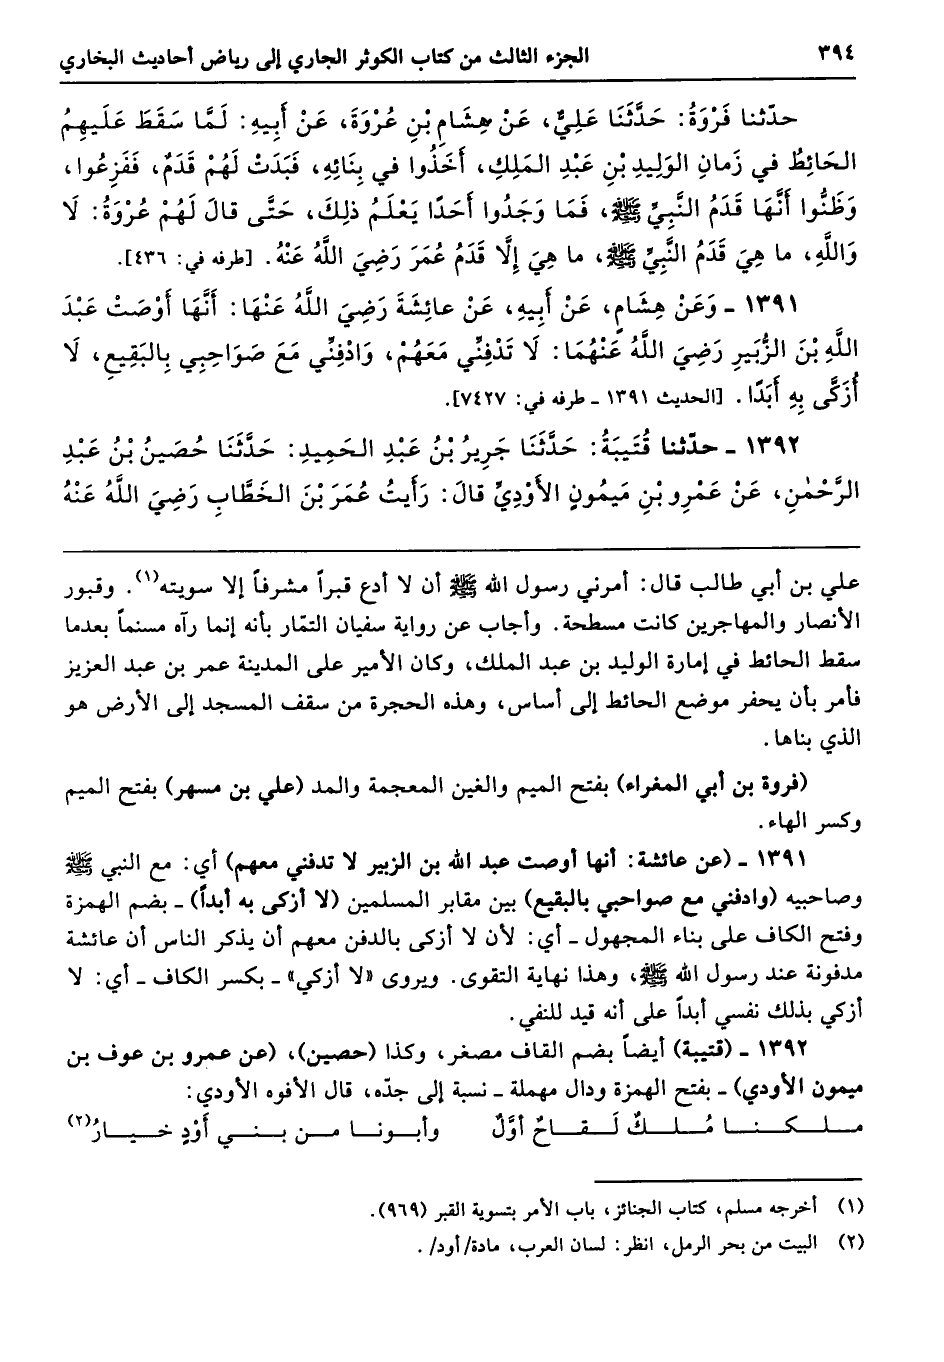 ٣٩٤ الجزء الثالث من كتاب الكوثر الجاري إلى رياض أحاديث البخاري
حدّثنا فَرْوَةُ: حَدَّثَنَا عَلِيٌّ، عَنْ هِشَامِ بْنِ عُرْوَةَ، عَنْ أَبِيهِ: لَمَّا سَقَطَ عَلَيهِمُ
الحَائِطُ في زَمانِ الوَلِيدِ بْنِ عَبْدِ المَلِكِ، أَخَذُوا في بِنَائِهِ، فَبَدَتْ لَهُمْ قَدَمٌ، فَفَزِعُوا،
وَظَنُّوا أَنَّهَا قَدَمُ النَّبِيِّ ﷺ، فَمَا وَجَدُوا أَحَدًا يَعْلَمُ ذلِكَ، حَتَّى قالَ لَهُمْ عُرْوَةُ: لَا
وَاللَّهِ، ما هِيَ قَدَمُ النَّبِيِّ ﷺ، ما هِيَ إِلَّا قَدَمُ عُمَرَ رَضِيَ اللَّهُ عَنْهُ. [طرفه في: ٤٣٦].
١٣٩١ - وَعَنْ هِشَامٍ، عَنْ أَبِيهِ، عَنْ عائِشَةَ رَضِيَ اللَّهُ عَنْهَا: أَنَّهَا أَوْصَتْ عَبْدَ
اللَّهِ بْنَ الزُّبَيرِ رَضِيَ اللَّهُ عَنْهُمَا: لَا تَدْفِنِّي مَعَهُمْ، وَادْفِنِّي مَعَ صَوَاحِبِي بِالبَقِيعِ، لَا
أُزَكَّى بِهِ أَبَدًا. [الحديث ١٣٩١ - طرفه في: ٧٤٢٧].
١٣٩٢ - حدّثنا قُتَيبَةُ: حَدَّثَنَا جَرِيرُ بْنُ عَبْدِ الحَمِيدِ: حَدَّثَنَا حُصَينُ بْنُ عَبْدِ
الرَّحْمٰنِ، عَنْ عَمْرِو بْنِ مَيمُونٍ الأَوْدِيِّ قالَ: رَأَيتُ عُمَرَ بْنَ الخَطَّابِ رَضِيَ اللَّهُ عَنْهُ
علي بن أبي طالب قال: أمرني رسول الله ﷺ أن لا أدع قبراً مشرفاً إلا سويته(١). وقبور
الأنصار والمهاجرين كانت مسطحة. وأجاب عن رواية سفيان التمّار بأنه إنما رآه مسنماً بعدما
سقط الحائط في إمارة الوليد بن عبد الملك، وكان الأمير على المدينة عمر بن عبد العزيز
فأمر بأن يحفر موضع الحائط إلى أساس، وهذه الحجرة من سقف المسجد إلى الأرض هو
الذي بناها.
(فروة بن أبي المغراء) بفتح الميم والغين المعجمة والمد (علي بن مسهر) بفتح الميم
وكسر الهاء.
١٣٩١ - (عن عائشة: أنها أوصت عبد الله بن الزبير لا تدفني معهم) أي: مع النبي ﷺ
وصاحبيه (وادفني مع صواحبي بالبقيع) بين مقابر المسلمين (لا أزكى به أبداً) - بضم الهمزة
وفتح الكاف على بناء المجهول - أي: لأن لا أزكى بالدفن معهم أن يذكر الناس أن عائشة
مدفونة عند رسول الله ﷺ، وهذا نهاية التقوى. ويروى «لا أزكي» - بكسر الكاف - أي: لا
أزكي بذلك نفسي أبداً على أنه قيد للنفي.
١٣٩٢ - (قتيبة) أيضاً بضم القاف مصغر، وكذا (حصين)، (عن عمرو بن عوف بن
ميمون الأودي) - بفتح الهمزة ودال مهملة - نسبة إلى جدّه، قال الأفوه الأودي:
مـلـكـنـا مُـلـكٌ لَـقـاحٌ أوَّلٌ وأبـونـا مـن بـنـي أَوْدٍ خـيـارُ(٢)
(١) أخرجه مسلم، كتاب الجنائز، باب الأمر بتسوية القبر (٩٦٩).
(٢) البيت من بحر الرمل، انظر: لسان العرب، مادة/ أود/.